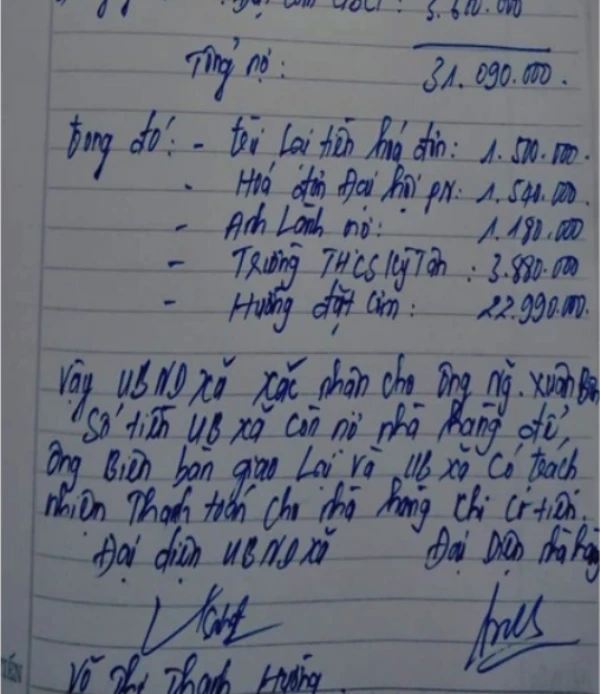 Đại cam UBCT: 5.610.000
Tổng nợ: 31.090.000.
trong đó: - trừ lại tiền hoá đơn: 1.500.000.
- Hoá đơn Đại hội PN: 1.540.000.
- Anh Lành nợ: 1.180.000
- Trường THCS Kỳ Tân: 3.880.000
- Hường đặt cơm: 22.990.000.
Vậy UBND xã xác nhận cho ông Ng. Xuân Biên
Số tiền UB xã còn nợ nhà hàng để,
ông Biên bàn giao lại và UB xã có trách
nhiện Thanh toán cho nhà hàng chị tiến.
Đại diện UBND xã Đại Diện nhà hàng
Võ Thị Thanh Hường